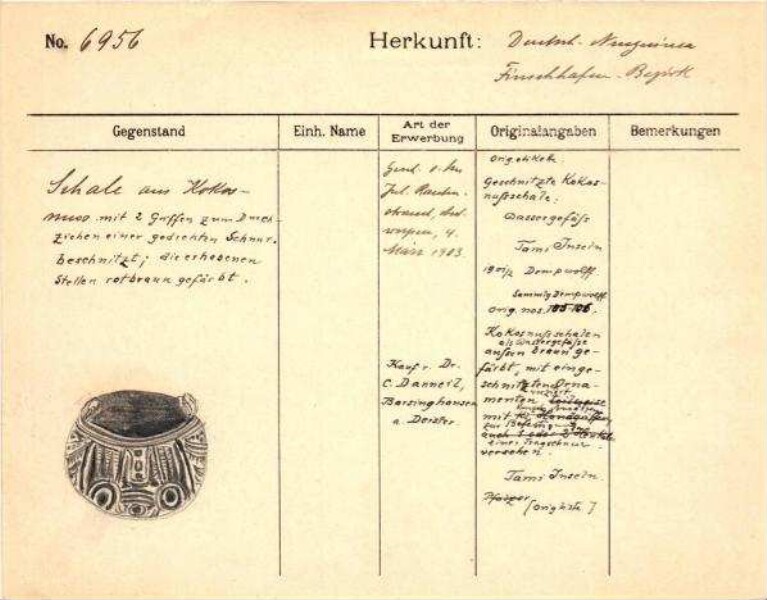 No. 6956
Herkunft: Deutsch. Neuguinea
Finschhafen-Bezirk
Gegenstand
Einh. Name
Art der Erwerbung
Originalangaben
Bemerkungen
Schale aus Kokos-
nuss mit 2 zum Durch-
ziehen einer gedrehten Schnur.
beschnitzt; die erhabenen
Stellen rotbraun gefärbt.
Jul.
4.
März 1903.
Kauf v. Dr.
C. Danneil,
Barsinghausen
a. Deister.
Orig. etikette.
Geschnitzte Kokos-
nußschale:
Wassergefäß
Tami Inseln
Dempwolff.
Sammlg Dempwolff.
orig. nos.
Kokosnußschalen
als Wassergefäße
außen braun ge-
färbt, mit einge-
schnitzten Orna-
menten, teilweise
mit
zur
auch 1 oder 2
einer Tragschnur
versehen.
Tami Inseln.
[Origliste]